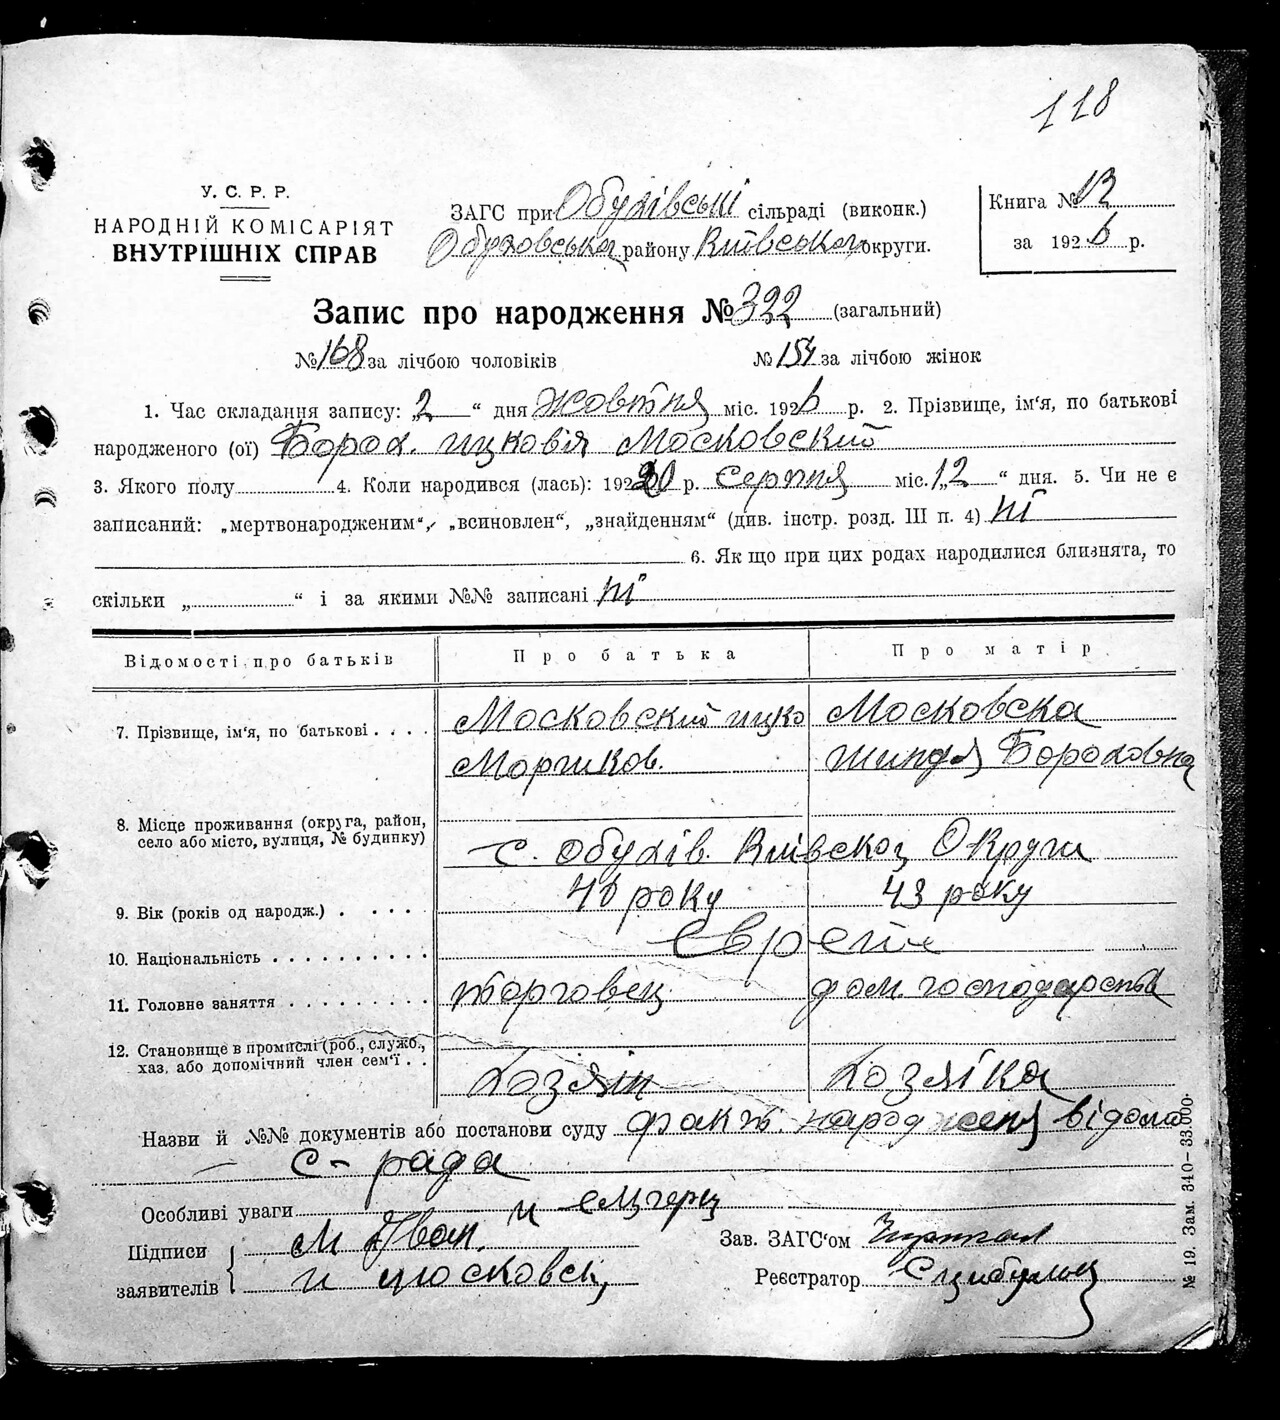 118
У. С. Р. Р.
НАРОДНІЙ КОМІСАРІЯТ
ВНУТРІШНІХ СПРАВ
ЗАГС при Обухівські сільраді (виконк.)
Обуховська району Київського округи.
Книга № 13
за 1926 р.
Запис про народження № 322 (загальний)
№ 168 за лічбою чоловіків № 154 за лічбою жінок
1. Час складання запису: 2 “ дня жовтня міс. 1926 р. 2. Прізвище, ім'я, по батькові
народженого (ої) Борох. ицковія Московский
3. Якого полу 4. Коли народився (лась): 1920 р. серпня міс. „12 “ дня. 5. Чи не є
записаний: „мертвонародженим“, „всиновлен“, „знайденням“ (див. інстр. розд. III п. 4) ні
6. Як що при цих родах народилися близнята, то
скільки „ “ і за якими №№ записані ні
Відомості про батьків Про батька Про матір
7. Прізвище, ім'я, по батькові Московский ицко Московска
Мортков. Шиндля Бороховна
8. Місце проживання (округа, район,
село або місто, вулиця, № будинку)
с. Обухів. Київскої Округи
9. Вік (років од народж.) 46 року 43 року
10. Національність євреї
11. Головне заняття торговец дом. господарства
12. Становище в промислі (роб., служб.,
хаз. або допомічний член сем'ї
хозяін хозяіка
Назви й №№ документів або постанови суду факт. народженя відома
с-рада
Особливі уваги
Підписи
заявителів
и московск
Зав. ЗАГС'ом
Реєстратор
№ 19. Зам. 340–33.000